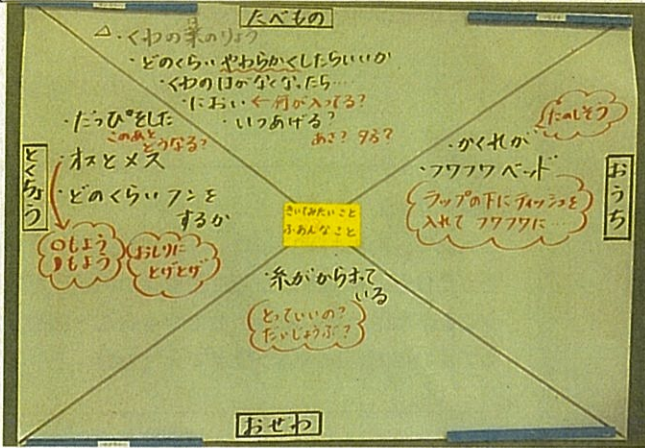 たべもの
△・くわの葉のりょう
・どのくらいやわらかくしたらいいか
・くわのはがなくなったら…
・におい ←何が入ってる?
・いつあげる?
あさ? 夕方?
とくちょう
・だっぴをした
このあと
どうなる?
・オスとメス
・どのくらいフンを
するか
もよう
もよう
おしりに
とげとげ
きいてみたいこと
ふあんなこと
おうち
たのしそう
・かくれが
・フワフワベッド
ラップの下にティッシュを
入れて フワフワに…
・糸がからまって
いる
とっていいの?
だいじょうぶ?
おせわ